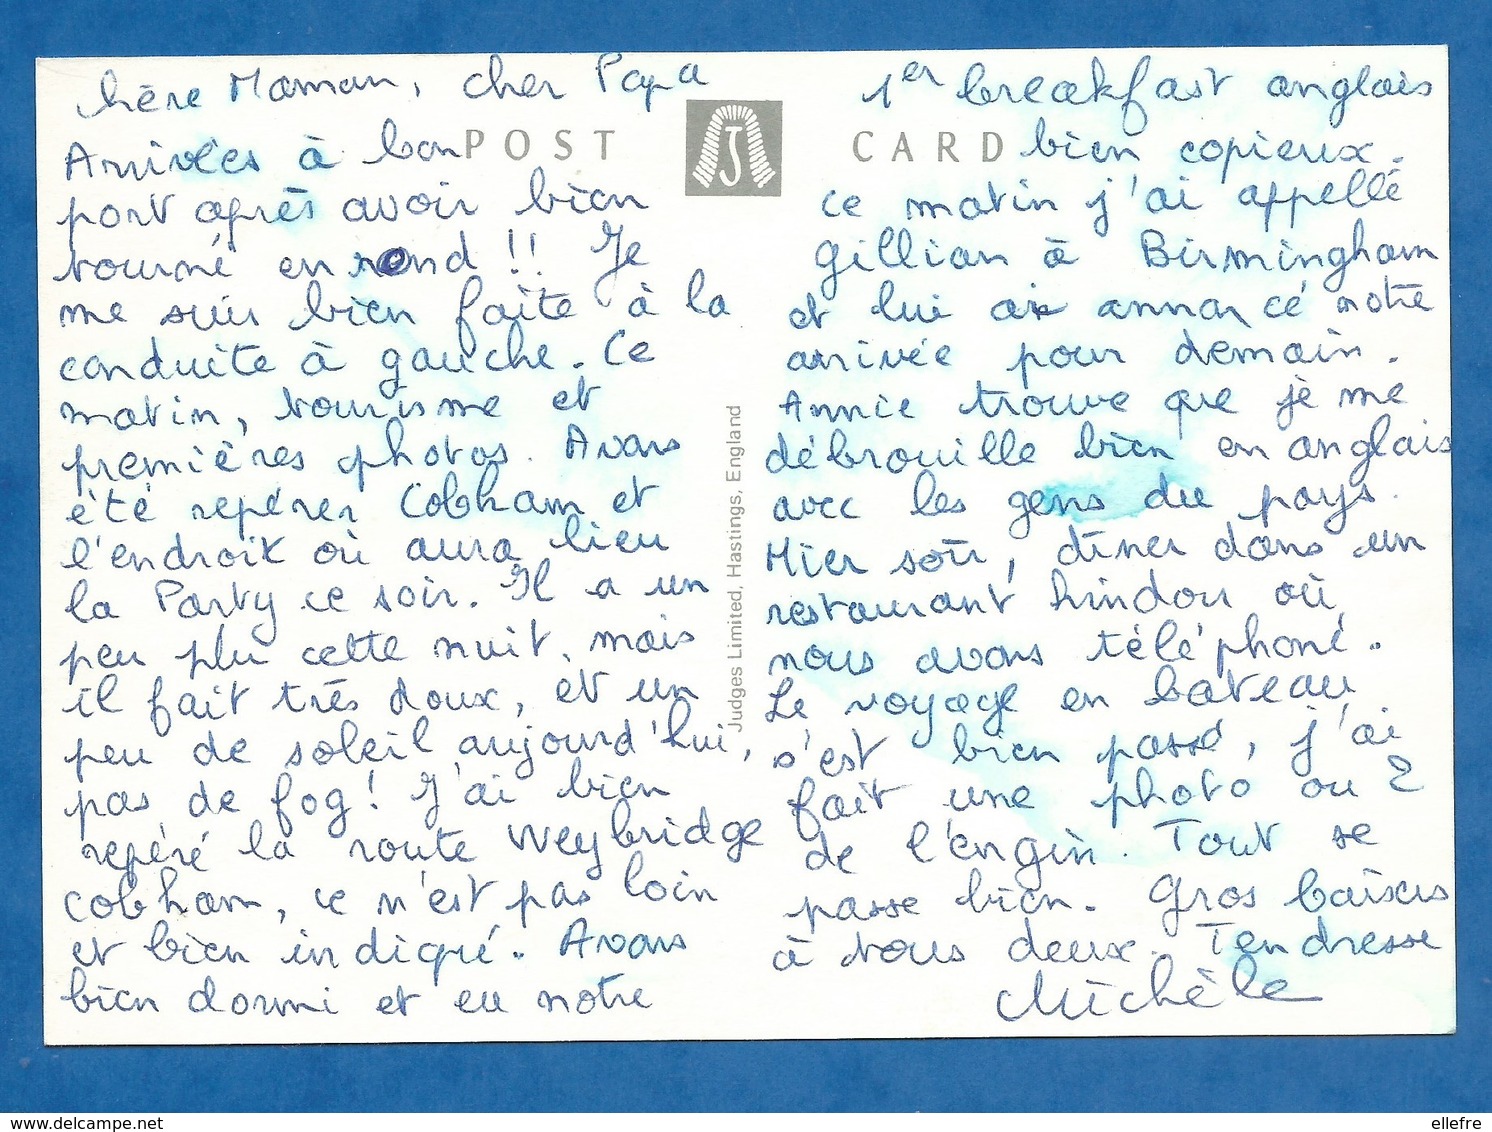 chère Maman, cher Papa
Arrivées à bon
port après avoir bien
tourné en rond !! Je
me suis bien faite à la
conduite à gauche. Ce
matin, tourisme et
premières photos. Avons
été repérer Cobham et
l'endroit où aura lieu
la Party ce soir. Il a un
peu plu cette nuit, mais
il fait très doux, et un
peu de soleil aujourd'hui,
pas de fog! J'ai bien
repéré la route Weybridge
Cobham, ce n'est pas loin
et bien indiqué. Avons
bien dormi et eu notre
POST CARD
Judges Limited, Hastings, England
1er breakfast anglais
bien copieux.
ce matin j'ai appellé
Gillian à Birmingham
et lui ai annoncé notre
arrivée pour demain.
Annie trouve que je me
débrouille bien en anglais
avec les gens du pays.
Hier soir, dîner dans un
restaurant hindou où
nous avons téléphoné.
Le voyage en bateau
s'est bien passé, j'ai
fait une photo ou 2
de l'engin. Tout se
passe bien. Gros baisers
à vous deux. Tendresse
Michèle
ellefre
delcampe.net